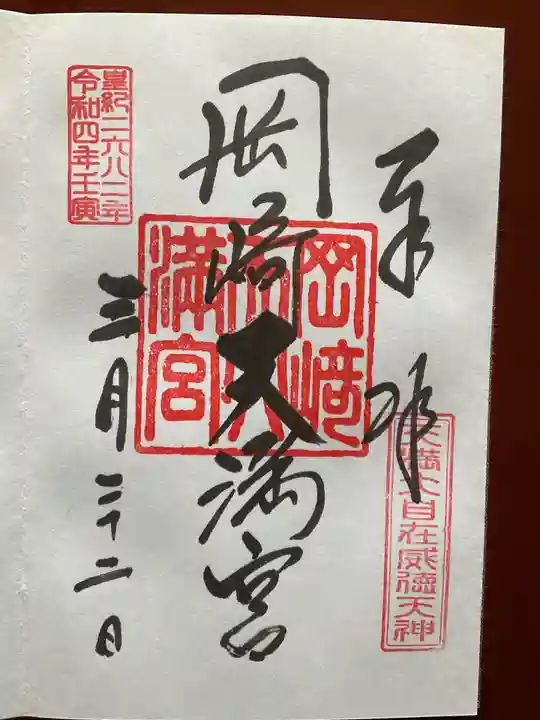 奉拝
天満大自在威徳天神
岡崎天満宮
岡崎天満宮
皇紀二六八二年
令和四年壬寅
三月二十二日